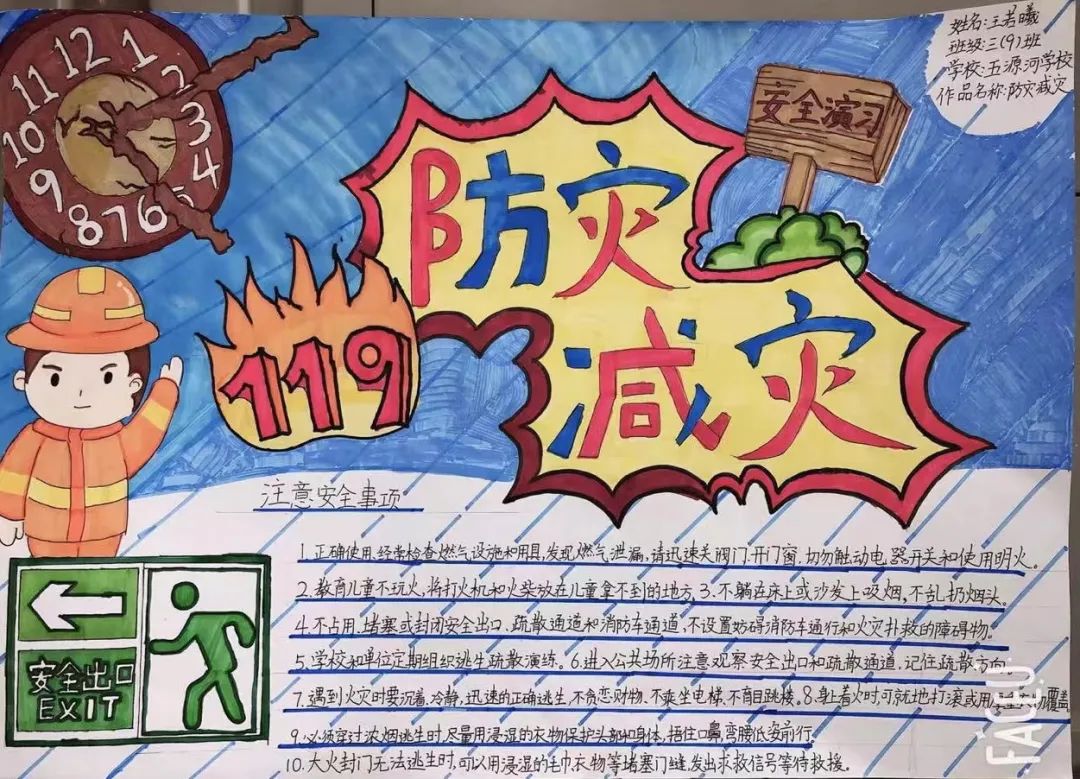 姓名:王若曦
班级:三(9)班
学校:五源河学校
作品名称:防灾减灾
12
1
2
3
4
5
6
7
8
9
10
11
安全演习
防灾
减灾
119
注意安全事项
1.正确使用、经常检查燃气设施和用具,发现燃气泄漏,请迅速关阀门、开门窗,切勿触动电器开关和使用明火。
2.教育儿童不玩火,将打火机和火柴放在儿童拿不到的地方,3.不躺在床上或沙发上吸烟,不乱扔烟头。
4.不占用、堵塞或封闭安全出口、疏散通道和消防车通道,不设置妨碍消防车通行和火灾扑救的障碍物。
5.学校和单位定期组织逃生疏散演练。6.进入公共场所注意观察安全出口和疏散通道,记住疏散方向。
7.遇到火灾时要沉着、冷静,迅速的正确逃生,不贪恋财物、不乘坐电梯、不盲目跳楼。8.身上着火时,可就地打滚或用覆盖
9.必须穿过浓烟逃生时,尽量用浸湿的衣物保护头部和身体,捂住口鼻,弯腰低姿前行。
10.大火封门无法逃生时,可以用浸湿的毛巾衣物等堵塞门缝,发出求救信号等待救援。
安全出口
EXIT
FACEU